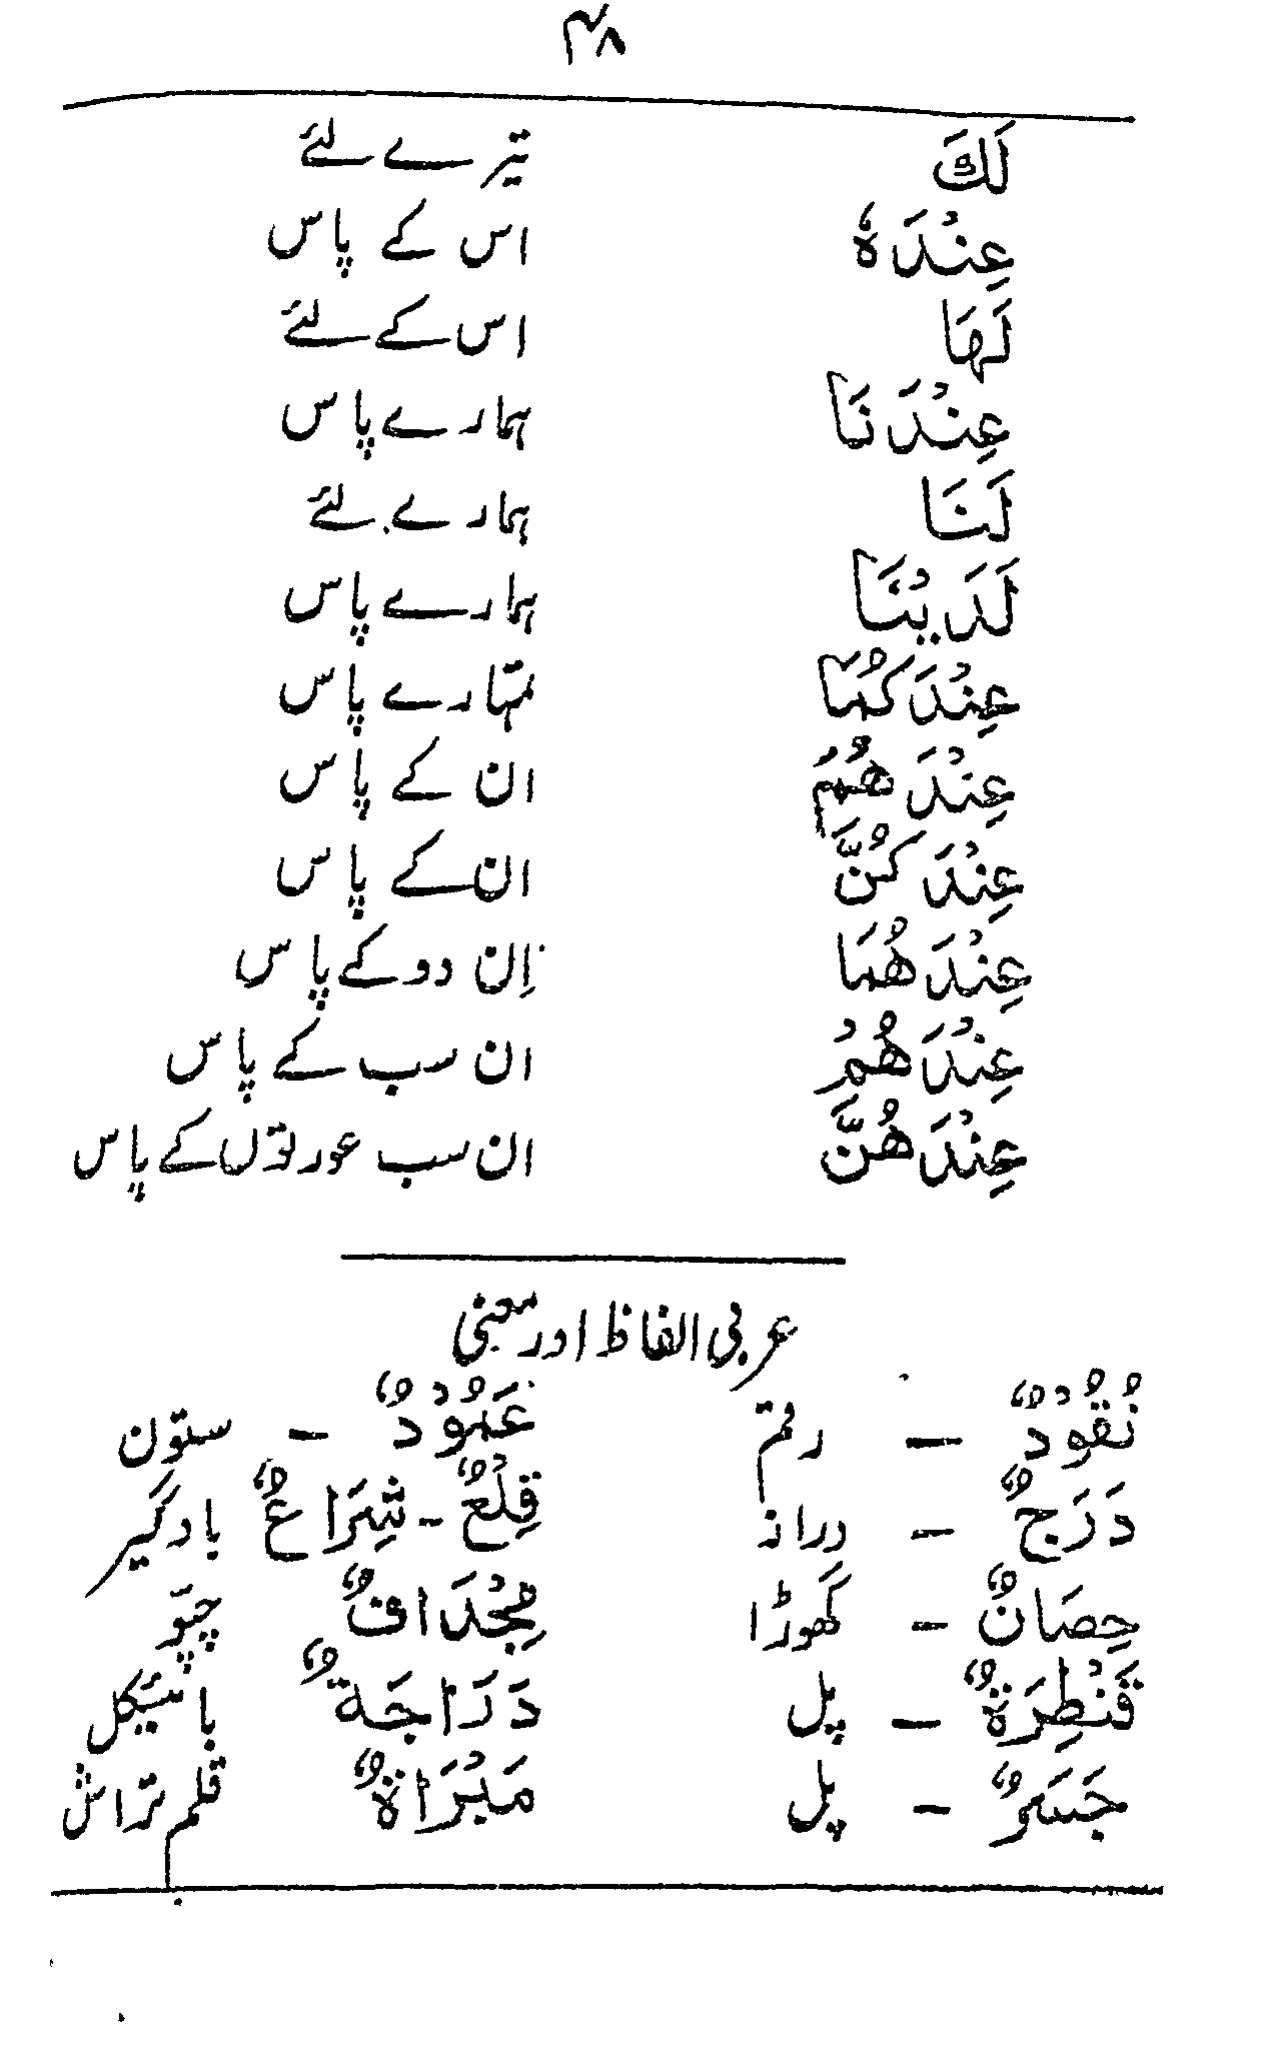 ۴۸
لَكَ تیرے لئے
عِنْدَهٗ اس کے پاس
لَهَا اس کے لئے
عِنْدَنَا ہمارے پاس
لَنَا ہمارے لئے
لَدَيْنَا ہمارے پاس
عِنْدَكُمَا تمہارے پاس
عِنْدَهُمْ ان کے پاس
عِنْدَكُنَّ ان کے پاس
عِنْدَهُمَا اِن دو کے پاس
عِنْدَهُمْ ان سب کے پاس
عِنْدَهُنَّ ان سب عورتوں کے پاس
عربی الفاظ اور معنی
نُقُوْدٌ – رقم عَمُوْدٌ – ستون
دَرَجٌ – دراز قِلْعٌ - شِرَاعٌ بادگیر
حِصَانٌ – گھوڑا مِجْدَافٌ چپّو
قَنْطِرَةٌ – پل دَرَاجَةٌ بائیسکل
جَسَرٌ – پل مَبْرَاةٌ قلم تراش